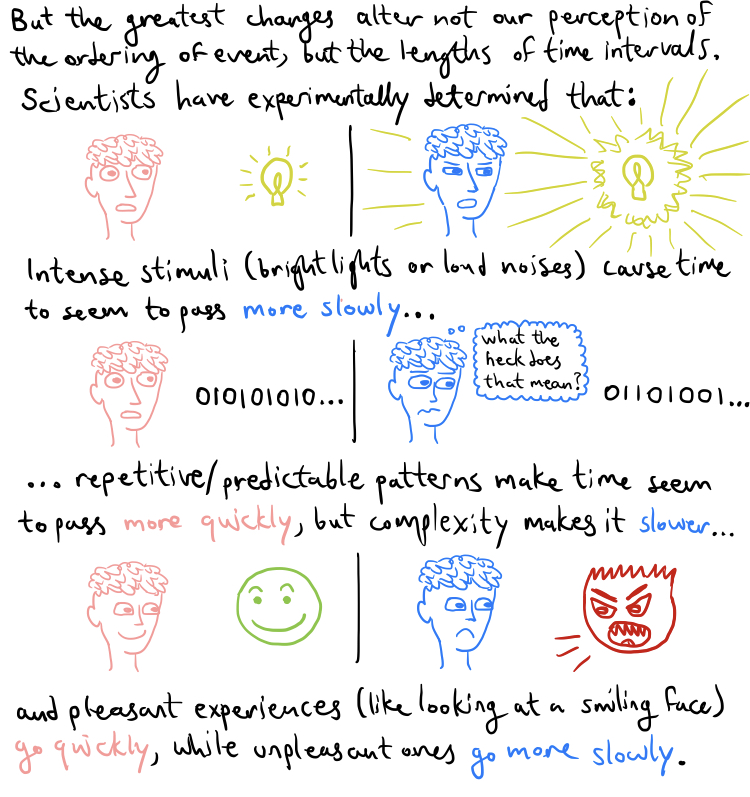 But the greatest changes alter not our perception of
the ordering of event, but the lengths of time intervals.
Scientists have experimentally determined that:
Intense stimuli (bright lights or loud noises) cause time
to seem to pass more slowly...
what the
heck does
that mean?
010101010...
01101001...
... repetitive/predictable patterns make time seem
to pass more quickly, but complexity makes it slower...
and pleasant experiences (like looking at a smiling face)
go quickly, while unpleasant ones go more slowly.